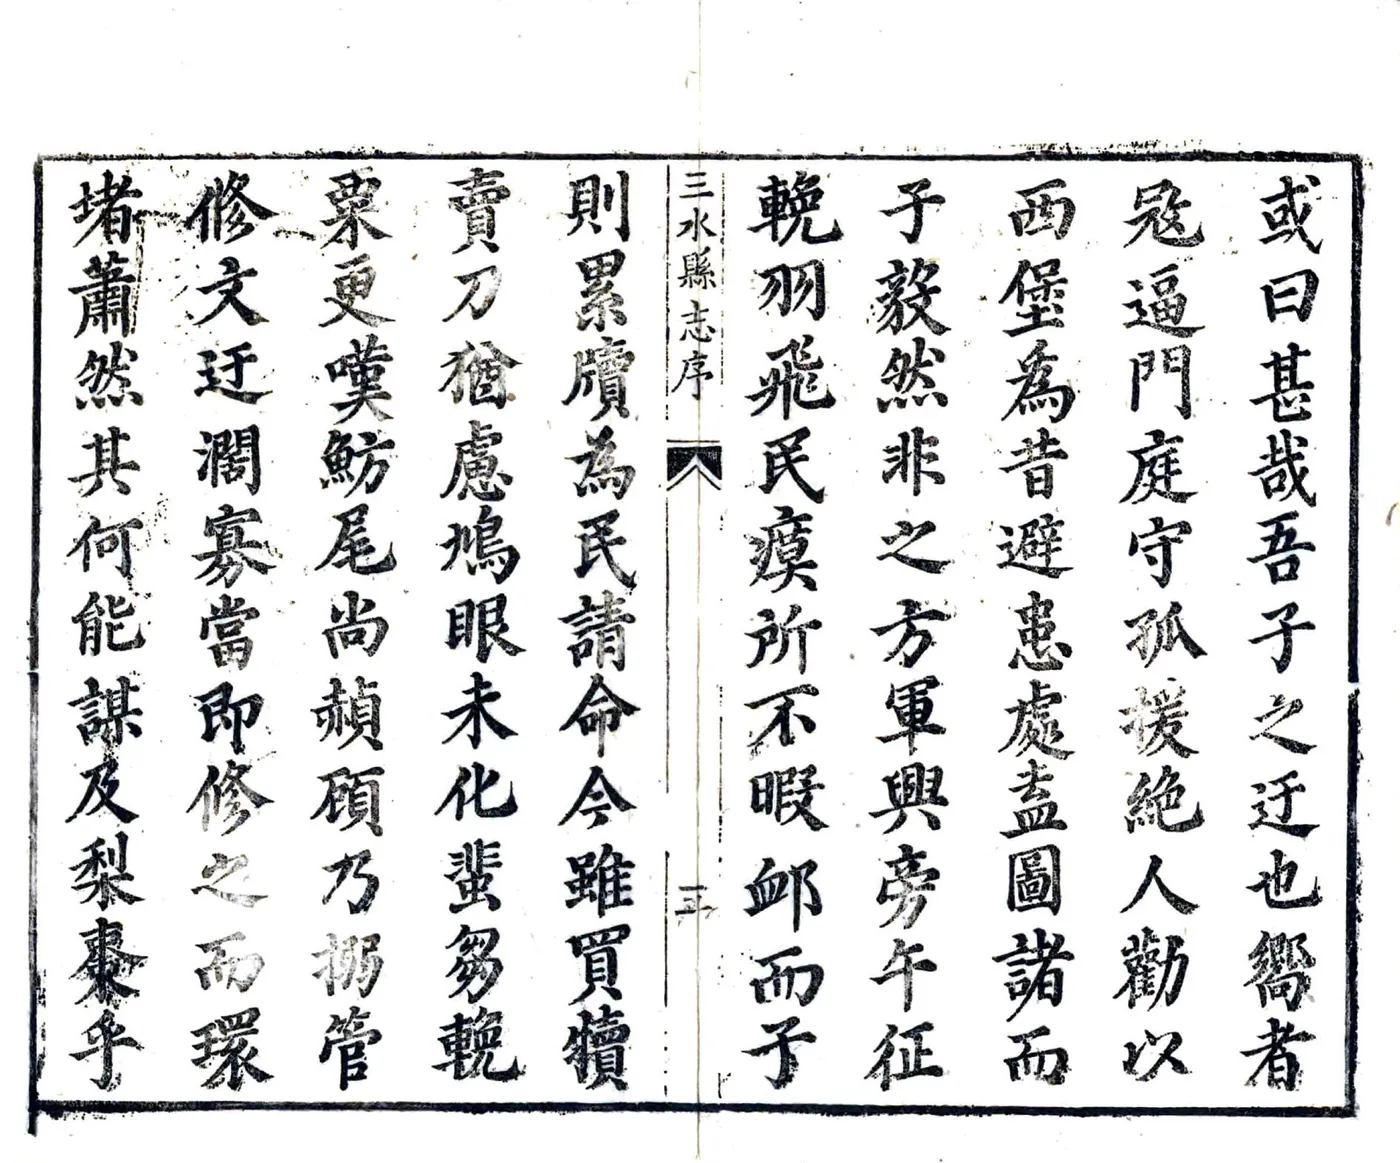 或曰甚哉吾子之迂也嚮者
冦逼門庭守孤援絶人勸以
西堡爲昔避患處盍圖諸而
子毅然非之方軍興旁午征
輓羽飛民瘼所不暇卹而子
三水縣志序
三
則累牘為民請命今雖買犢
賣刀猶慮鳩眼未化蜚芻輓
粟更嘆魴尾尚赬顧乃搦管
修文迂濶寡當即修之而環
堵蕭然其何能謀及梨棗乎